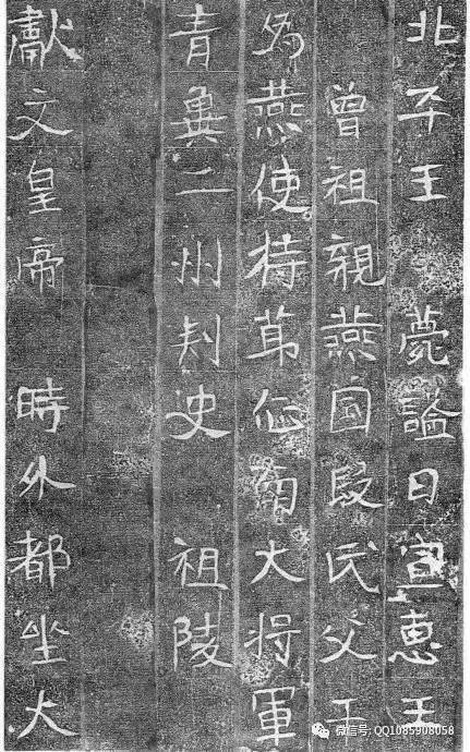 北平王 薨諡曰宣恵王
曾祖親燕国段氏父
為燕使持節征南大将軍
青冀二州刾史 祖陵
獻文皇帝 時外都坐大
微信号: QQ1085908058